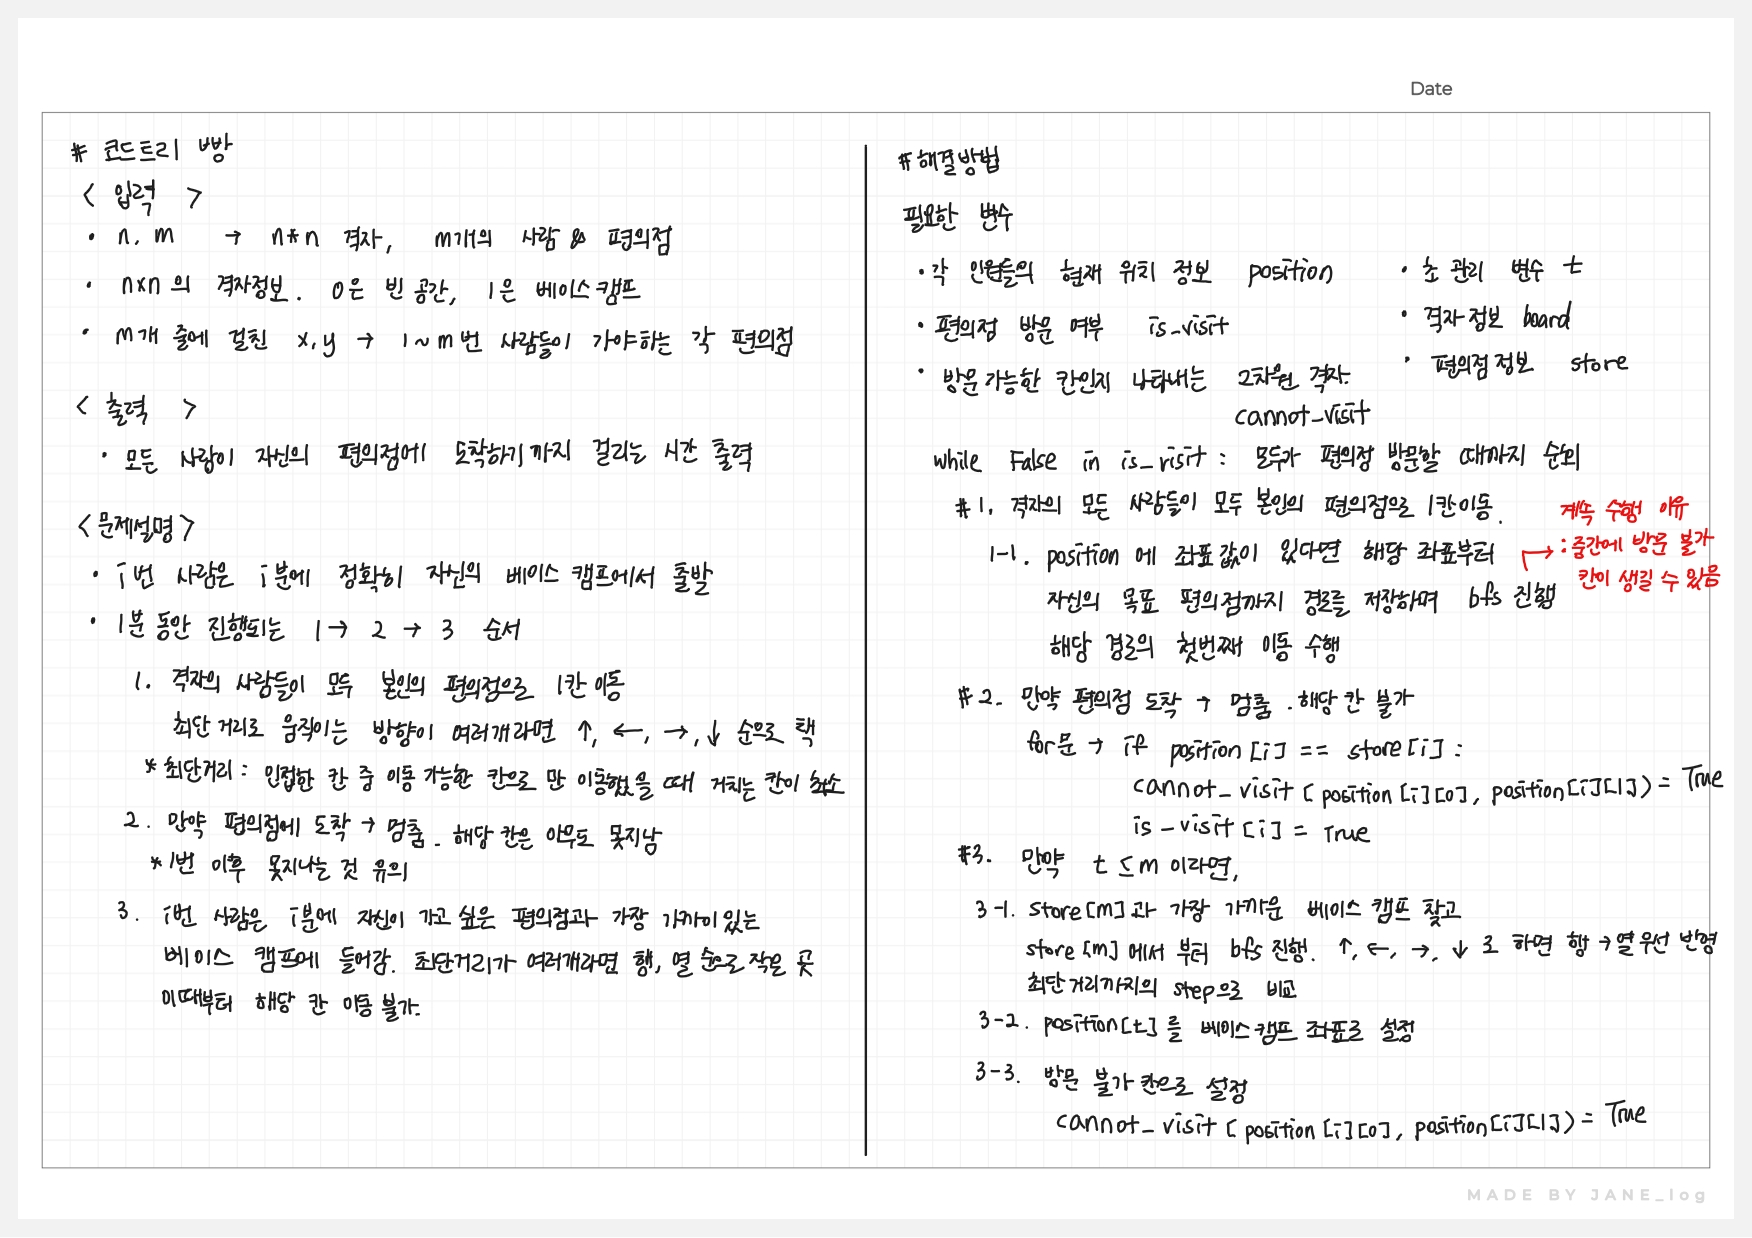 Date
# 코드트리 빵
< 입력 >
• n, m → n*n 격자, m개의 사람 & 편의점
• n×n의 격자정보. 0은 빈 공간, 1은 베이스캠프
• m개 줄에 걸친 x,y → 1~m번 사람들이 가야하는 각 편의점
< 출력 >
• 모든 사람이 자신의 편의점에 도착하기까지 걸리는 시간 출력
<문제설명>
• i번 사람은 i분에 정확히 자신의 베이스 캠프에서 출발
• 1분 동안 진행되는 1→ 2 → 3 순서
1. 격자의 사람들이 모두 본인의 편의점으로 1칸 이동
최단 거리로 움직이는 방향이 여러개라면 ↑, ←, →, ↓ 순으로 택
* 최단거리 : 인접한 칸 중 이동 가능한 칸으로 만 이동했을 때 거치는 칸이 최소
2. 만약 편의점에 도착 → 멈춤. 해당 칸은 아무도 못지남
* 1번 이후 못지나는 것 유의
3. i번 사람은 i분에 자신이 가고 싶은 편의점과 가장 가까이 있는
베이스 캠프에 들어감. 최단거리가 여러개라면 행, 열 순으로 작은 곳
이때부터 해당 칸 이동 불가.
# 해결방법
필요한 변수
• 각 인원들의 현재 위치 정보 position
• 초 관리 변수 t
• 편의점 방문 여부 is_visit
• 격자정보 board
• 방문가능한 칸인지 나타내는 2차원 격자.
• 편의점정보 store
cannot_visit
while False in is_visit : 모두가 편의점 방문할 때까지 순회
#1. 격자의 모든 사람들이 모두 본인의 편의점으로 1칸이동.
1-1. position에 좌표값이 있다면 해당 좌표부터
자신의 목표 편의점까지 경로를 저장하며 bfs 진행
해당 경로의 첫번째 이동 수행
계속 수행 이유
→ : 중간에 방문 불가
칸이 생길 수 있음
#2. 만약 편의점 도착 → 멈춤. 해당 칸 불가
for문 → if position[i] == store[i] :
cannot_visit[position[i][0], position[i][1]) = True
is_visit[i] = True
#3. 만약 t ≤ m 이라면,
3-1. store[m]과 가장 가까운 베이스 캠프 찾고
store[m]에서 부터 bfs 진행. ↑, ←, →, ↓ 로 하면 행→열 우선 반영
최단거리까지의 step으로 비교
3-2. position[t]를 베이스캠프 좌표로 설정
3-3. 방문 불가 칸으로 설정
cannot_visit[position[i][0], position[i][1]) = True
MADE BY JANE_log